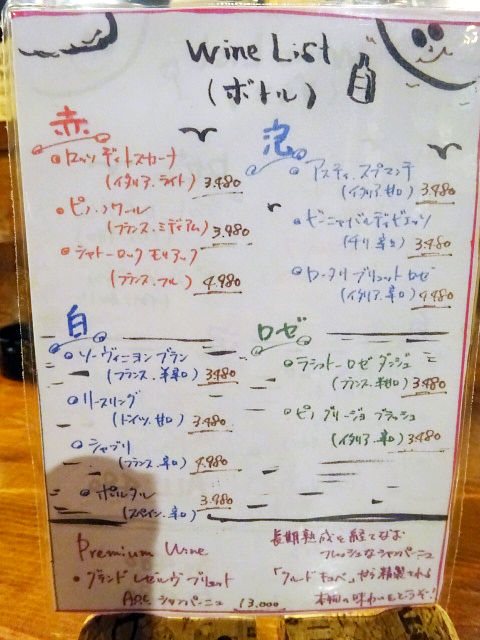 Wine List
(ボトル)
赤
ロッソ ディ トスカーナ
(イタリア.ライト) 3.480
ピノ.ノワール
(フランス.ミディアム) 3.980
シャトーロック モリアック
(フランス.フル) 4.980
泡
アスティ.スプマンテ
(イタリア.甘口) 3.480
ビーニャ バルディビエソ
(チリ.辛口) 3.480
ロータリ ブリュット ロゼ
(イタリア.辛口) 4.480
白
ソーヴィニヨン ブラン
(フランス.辛口) 3.480
リースリング
(ドイツ.甘口) 3.480
シャブリ
(フランス.辛口) 4.980
ポルタル
(スペイン.辛口) 3.980
ロゼ
ラシュトー ロゼ ダンジュ
(フランス.甘口) 3.480
ピノ グリージョ ブラッシュ
(イタリア.辛口) 3.480
Premium Wine
グランド レゼルヴ ブリュット
シャンパーニュ 13.000
長期熟成を経てなお
フレッシュなシャンパーニュ
「クードキュベ」から精製される
本物の味わいをどうぞ!